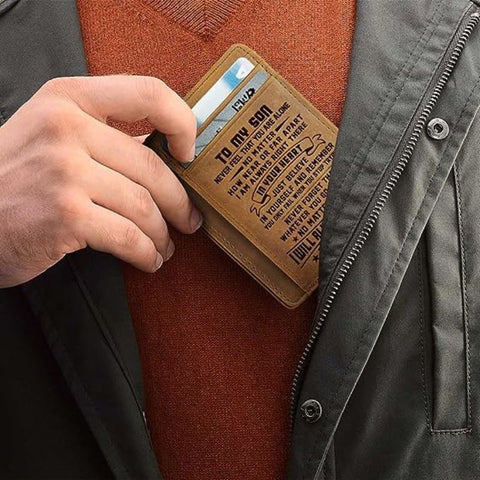 TO MY SON
NEVER FEEL THAT YOU ARE ALONE
NO MATTER
HOW NEAR OR FAR APART
I AM ALWAYS RIGHT THERE
IN YOUR HEART
JUST BELIEVE
IN YOURSELF AND REMEMBER
YOU ONLY FAIL WHEN YOU STOP TRY
NEVER FORGET
WHATEVER YOU
NO MAT
I WILL